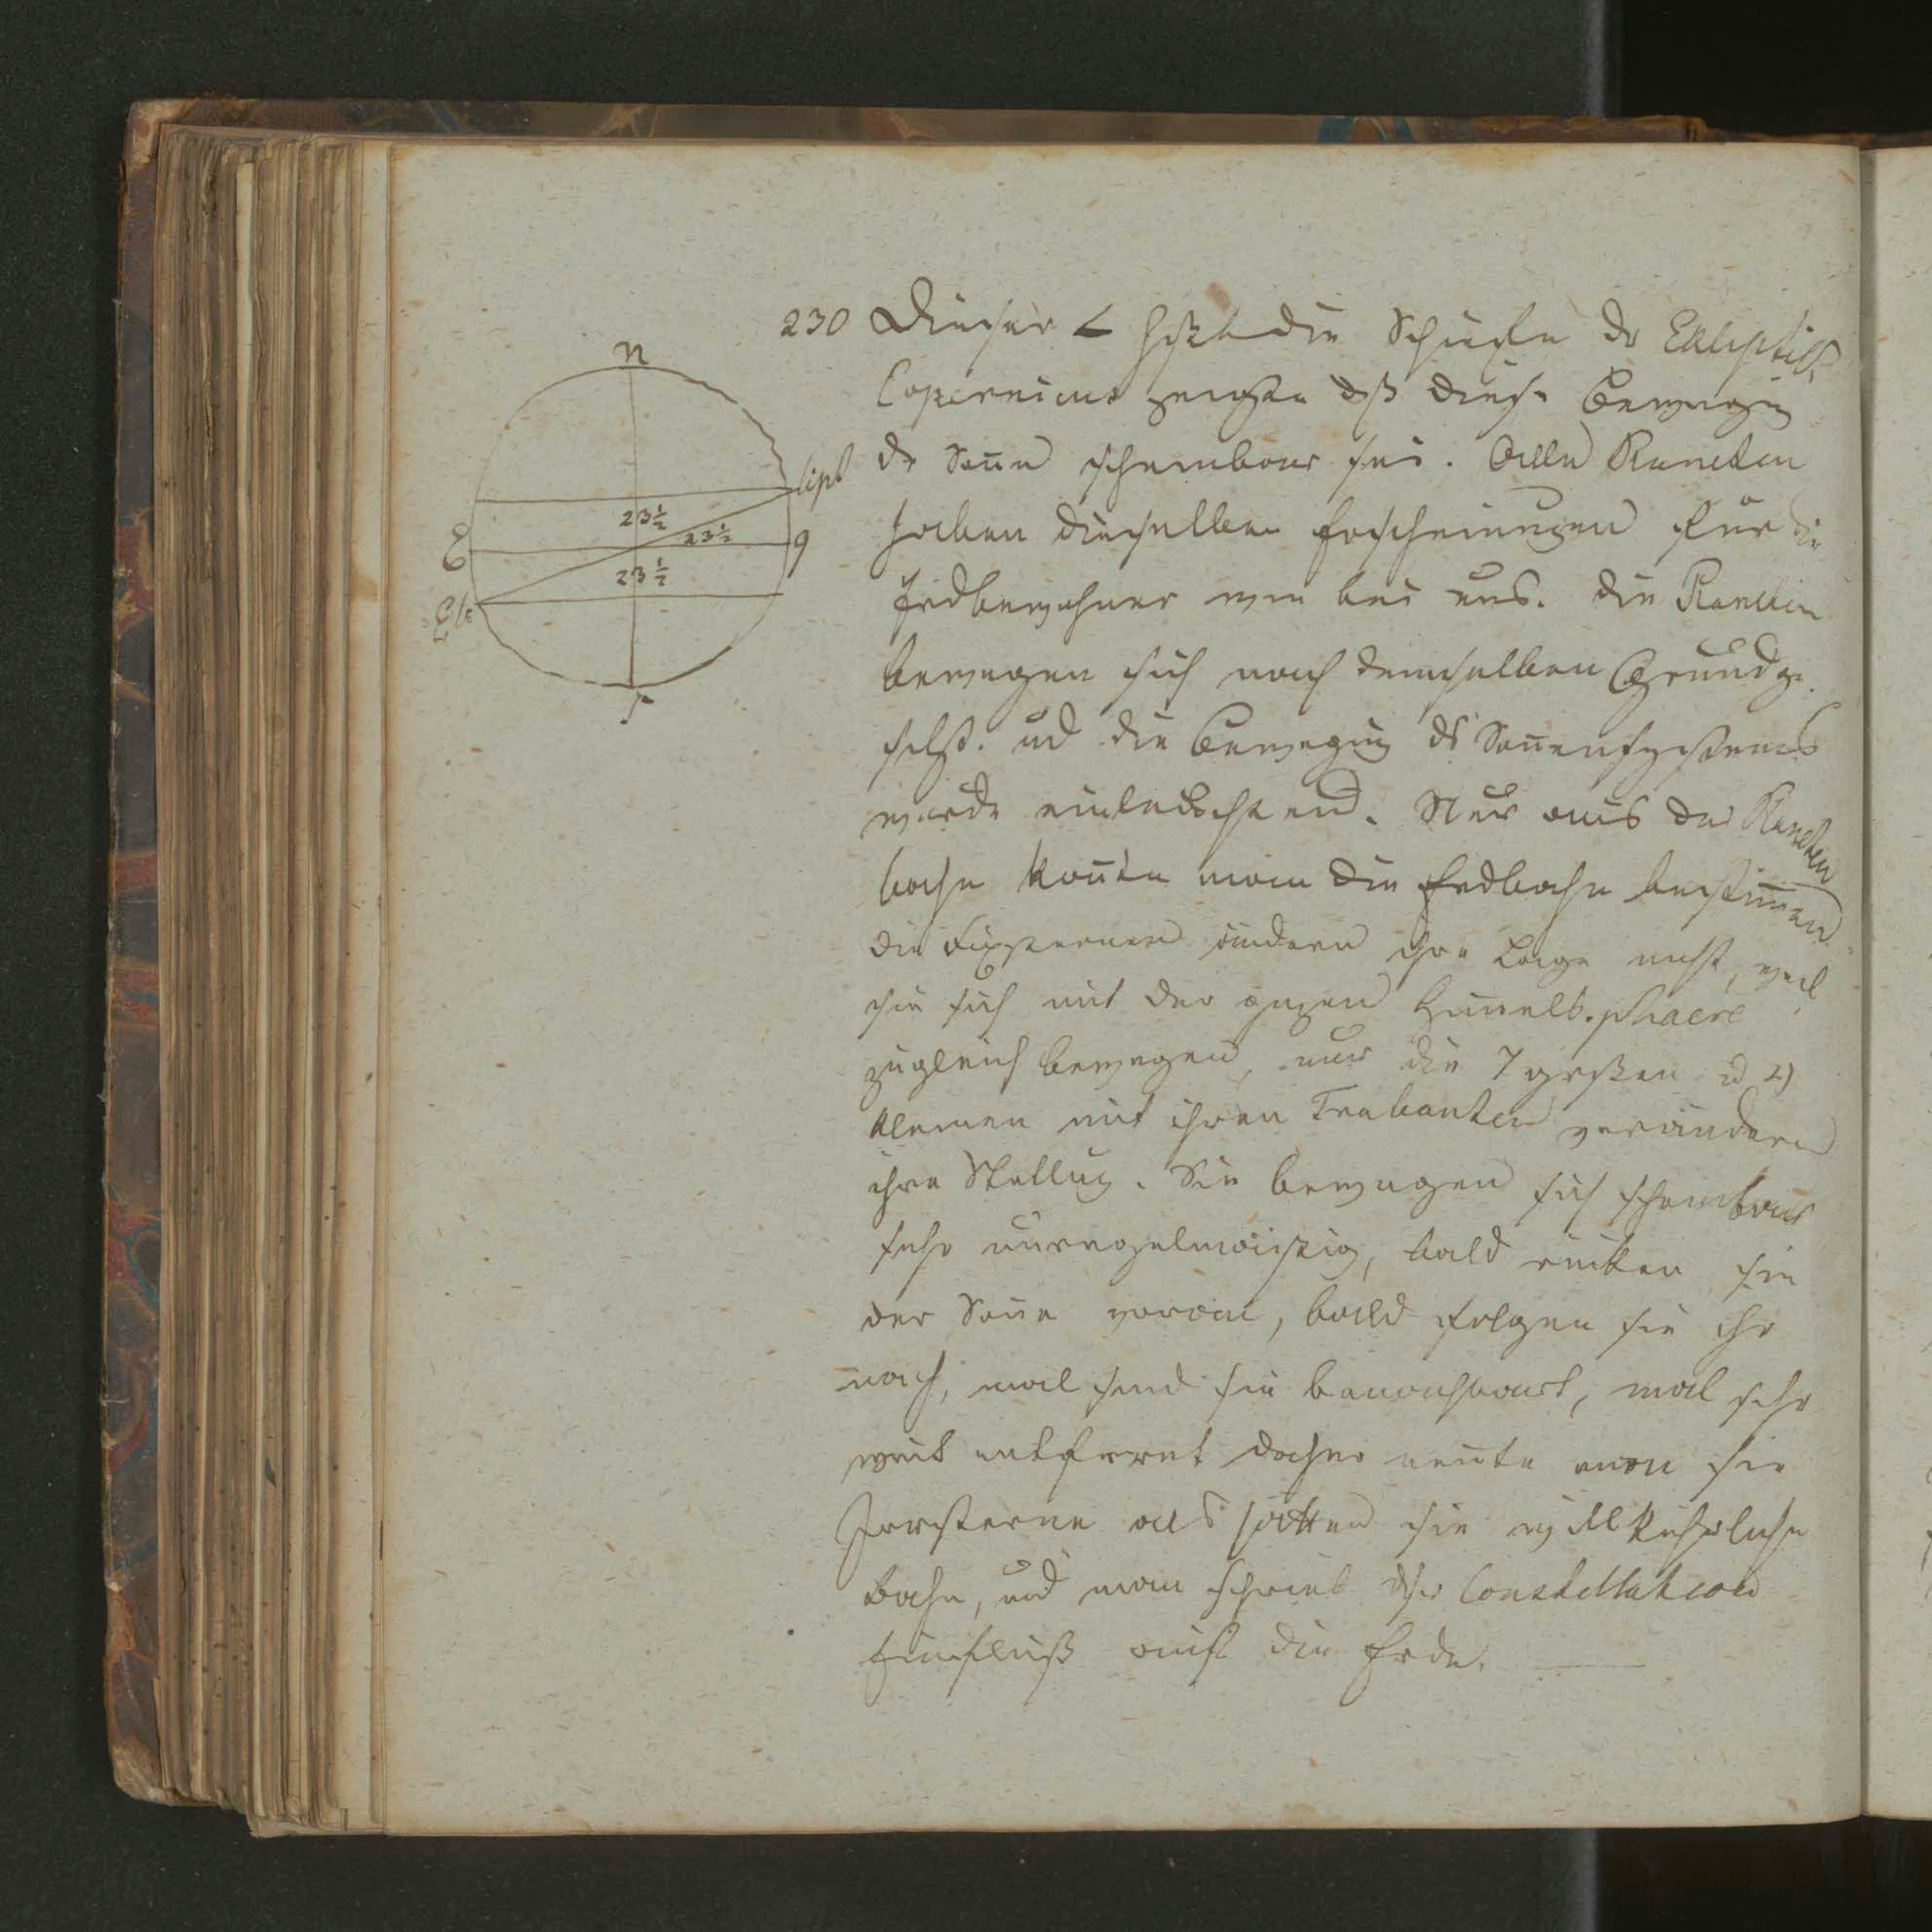 230 Dieser ∠ heißt die Schiefe dr Ekliptik,
Copernicus zeigte dß diese Bewegug
dr Soñe scheinbar sei. Alle Planeten
haben dieselben Erscheinungen für die
Erdbewohner wie bei uns. Die Planeten
bewegen sich nach demselben Grundge
setz. ud die Bewegug ds Soñensystems
wurde einleuchtend. Nur aus der Planeten
bahn koñte man die Erdbahn bestim̄en
die Fixsternen ändern ihre Lage nicht, weil
sie sich mit der ganzen Him̄elssphaere
zugleich bewegen, nur die 7 großen ud 4
kleinen mit ihren Trabanten verändern
ihre Stellug. Sie bewegen sich scheinbar
sehr unregelmäßig, bald rücken sie
der Soñe voran, bald folgen sie ihr
nach, mal sind sie benachbart, mal sehr
weit entfernt daher neñte man sie
Irrsterne als hätten sie willkührliche
Bahn, und man schrieb dsr Constellation
Einfluß auf die Erde.
n
lipt
23½
23½
E
q
23½
Ek
s